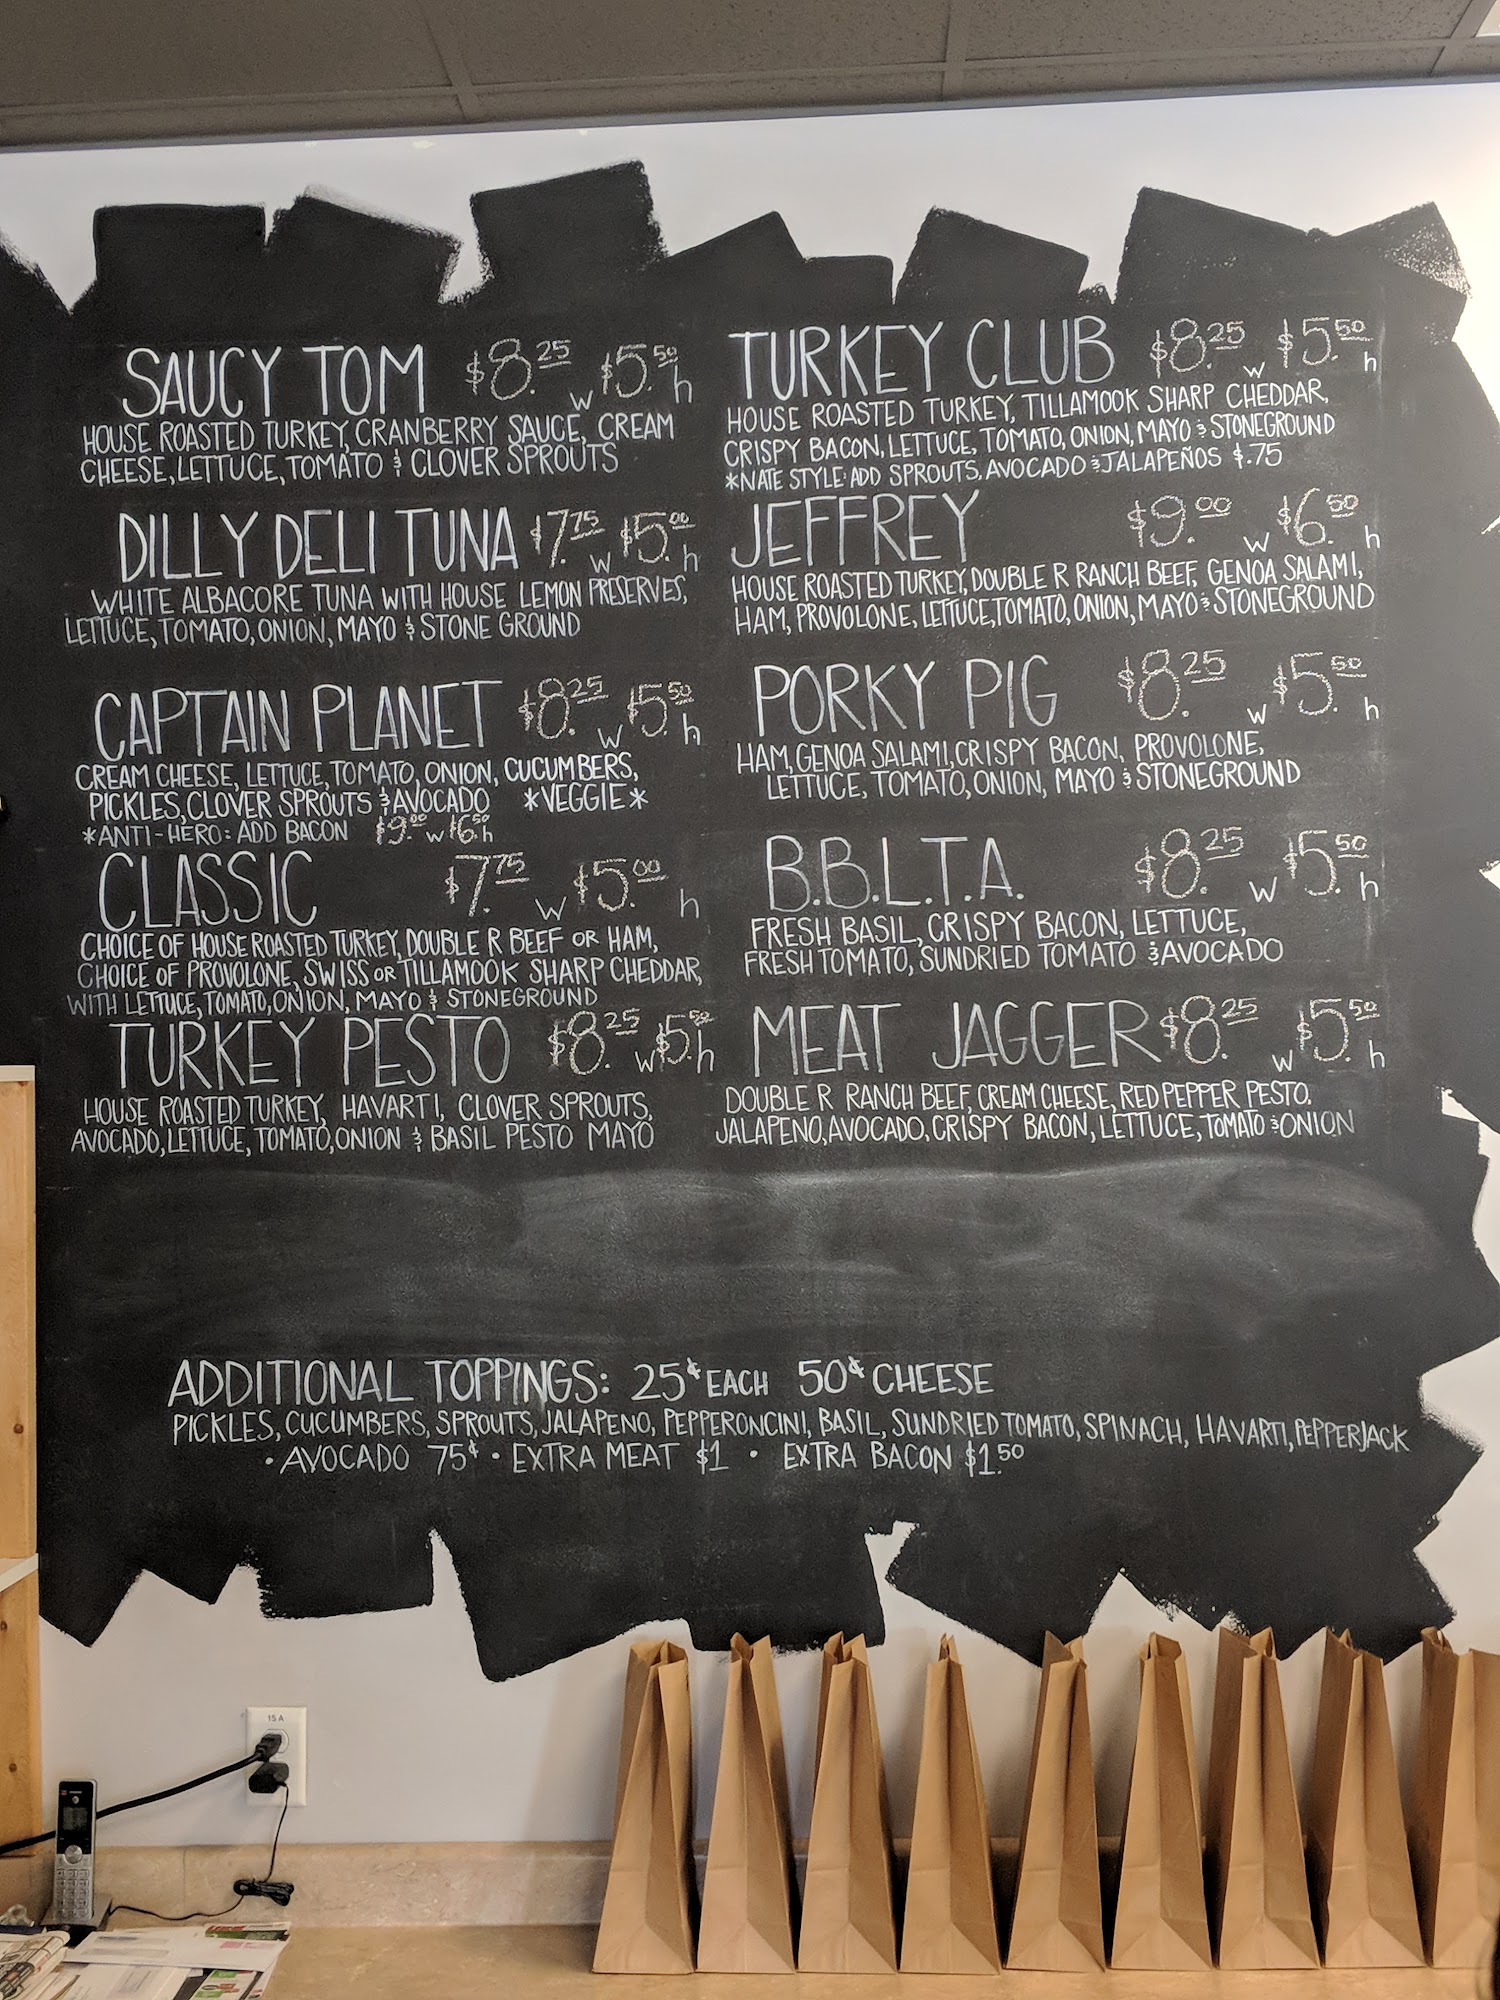 SAUCY TOM $8.25 w $5.50 h
HOUSE ROASTED TURKEY, CRANBERRY SAUCE, CREAM
CHEESE, LETTUCE, TOMATO & CLOVER SPROUTS
DILLY DELI TUNA $7.75 w $5.00 h
WHITE ALBACORE TUNA WITH HOUSE LEMON PRESERVES,
LETTUCE, TOMATO, ONION, MAYO & STONE GROUND
CAPTAIN PLANET $8.25 w $5.50 h
CREAM CHEESE, LETTUCE, TOMATO, ONION, CUCUMBERS,
PICKLES, CLOVER SPROUTS & AVOCADO *VEGGIE*
*ANTI-HERO: ADD BACON $9.00 w $6.50 h
CLASSIC $7.75 w $5.00 h
CHOICE OF HOUSE ROASTED TURKEY, DOUBLE R BEEF OR HAM,
CHOICE OF PROVOLONE, SWISS OR TILLAMOOK SHARP CHEDDAR,
WITH LETTUCE, TOMATO, ONION, MAYO & STONEGROUND
TURKEY PESTO $8.25 w $5.50 h
HOUSE ROASTED TURKEY, HAVARTI, CLOVER SPROUTS,
AVOCADO, LETTUCE, TOMATO, ONION & BASIL PESTO MAYO
TURKEY CLUB $8.25 w $5.50 h
HOUSE ROASTED TURKEY, TILLAMOOK SHARP CHEDDAR,
CRISPY BACON, LETTUCE, TOMATO, ONION, MAYO & STONEGROUND
*NATE STYLE: ADD SPROUTS, AVOCADO & JALAPEÑOS $.75
JEFFREY $9.00 w $6.50 h
HOUSE ROASTED TURKEY, DOUBLE R RANCH BEEF, GENOA SALAMI,
HAM, PROVOLONE, LETTUCE, TOMATO, ONION, MAYO & STONEGROUND
PORKY PIG $8.25 w $5.50 h
HAM, GENOA SALAMI, CRISPY BACON, PROVOLONE,
LETTUCE, TOMATO, ONION, MAYO & STONEGROUND
B.B.L.T.A. $8.25 w $5.50 h
FRESH BASIL, CRISPY BACON, LETTUCE,
FRESH TOMATO, SUNDRIED TOMATO & AVOCADO
MEAT JAGGER $8.25 w $5.50 h
DOUBLE R RANCH BEEF, CREAM CHEESE, RED PEPPER PESTO,
JALAPENO, AVOCADO, CRISPY BACON, LETTUCE, TOMATO & ONION
ADDITIONAL TOPPINGS: 25¢ EACH 50¢ CHEESE
PICKLES, CUCUMBERS, SPROUTS, JALAPENO, PEPPERONCINI, BASIL, SUNDRIED TOMATO, SPINACH, HAVARTI, PEPPERJACK
• AVOCADO 75¢ • EXTRA MEAT $1 • EXTRA BACON $1.50
15 A